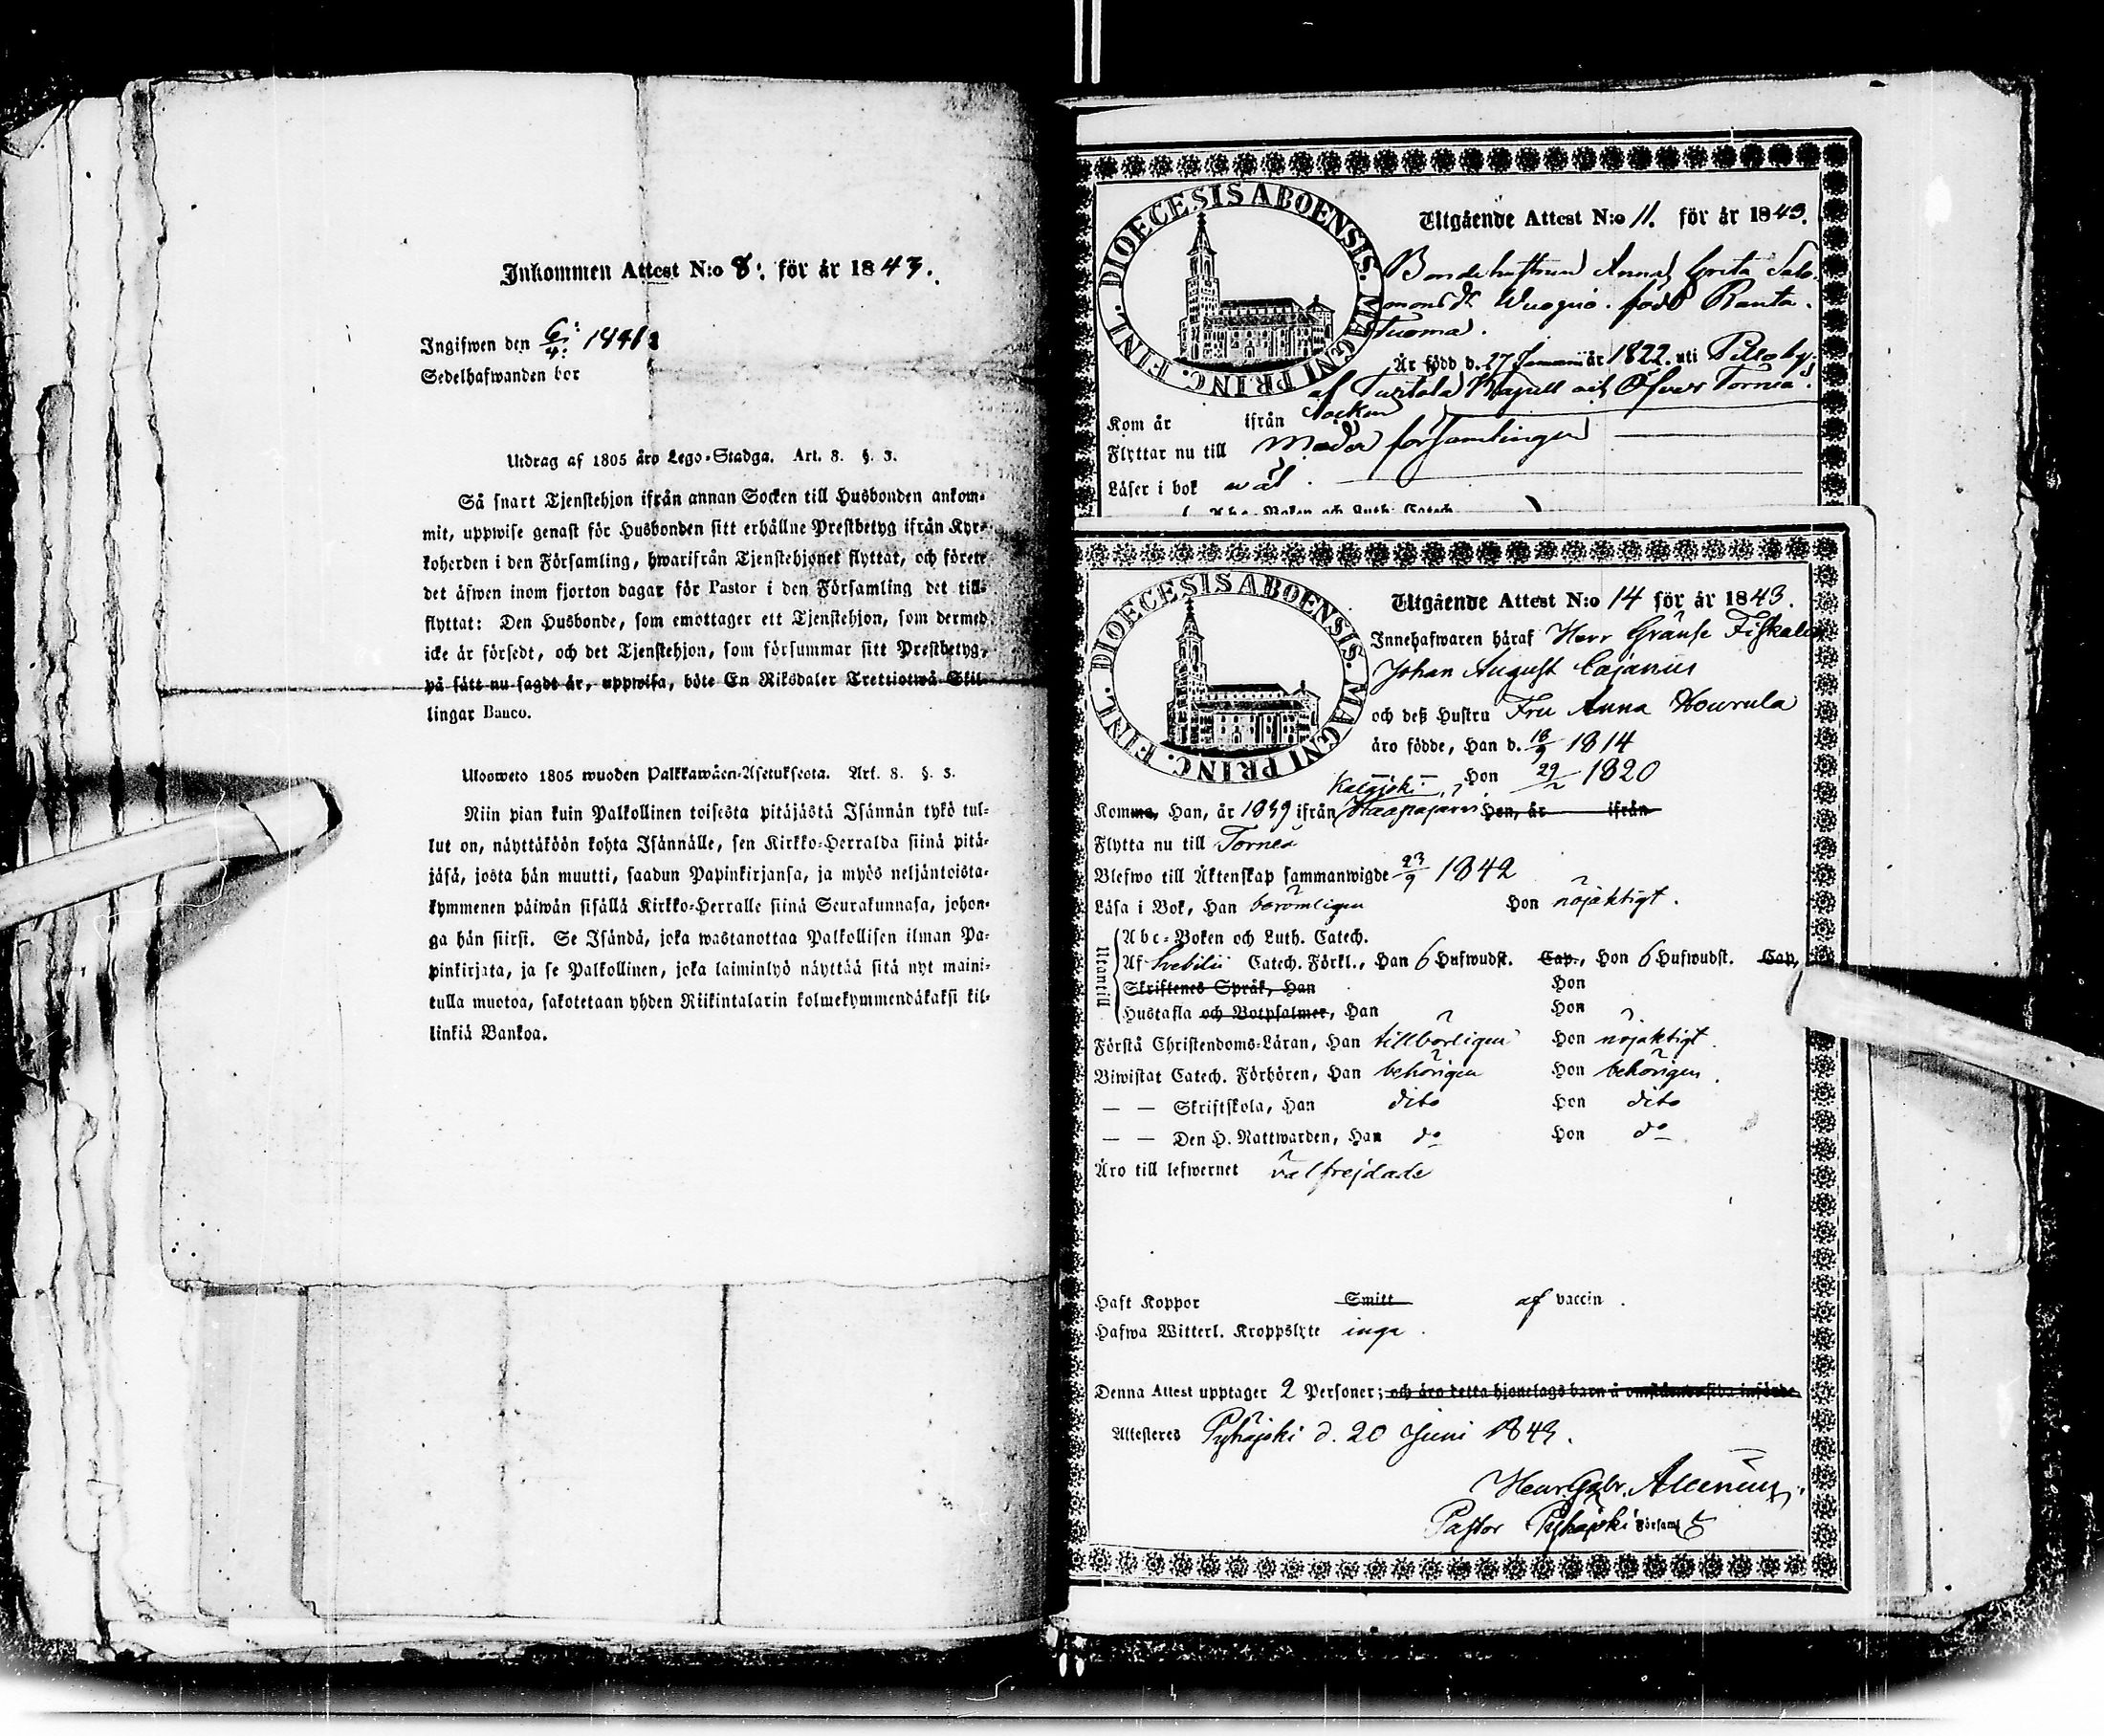 Inkommen Attest N:o 8. för år 1843.
Ingifwen den 6/4.
Sedelhafwanden bor
Utdrag af 1805 års Lego-Stadga. Art. 8. §. 3.
Så snart Tjenstehjon ifrån annan Socken till Husbonden ankom-
mit, uppwise genast för Husbonden sitt erhållne Prestbetyg ifrån Kyr-
koherden i den Församling, hwarifrån Tjenstehjonet flyttat, och förete
det äfwen inom fjorton dagar för Pastor i den Församling det till-
flyttat: Den Husbonde, som emottager ett Tjenstehjon, som dermed
icke är försedt, och det Tjenstehjon, som försummar sitt Prestbetyg,
på sätt nu sagdt är, uppwisa, böte En Riksdaler Trettiotwå Skil-
lingar Banco.
Ulosweto 1805 wuoden Palkkawäen-Asetuksesta. Art. 8. §. 3.
Niin pian kuin Palkollinen toisesta pitäjästä Isännän tykö tul-
lut on, näyttäköön kohta Isännälle, sen Kirkko-Herralda siinä pitä-
jäsä, josta hän muutti, saadun Papinkirjansa, ja myös neljäntoista-
kymmenen päiwän sisällä Kirkko-Herralle siinä Seurakunnasa, johon-
ga hän siirsi. Se Isändä, joka wastanottaa Palkollisen ilman Pa-
pinkirjata, ja se Palkollinen, joka laiminlyö näyttää sitä nyt maini-
tulla muotoa, sakotetaan yhden Riikintalarin kolmekymmendäkaksi kil-
linkiä Bankoa.
DIOECESIS ABOENSIS. MAGNI PRINC. FINL.
Utgående Attest N:o 11. för år 1843.
Bondehustrun Anna Greta Salo-
monsdr Wuopio. född Ranta.
Tuoma.
Är född d. 27 Januari år 1822. uti Pello by.
af Turtola Kapell och Öfver Torneå
Socken
Kom år ifrån
Flyttar nu till Moder församlingen
Läser i bok wäl.
Abc-Boken och Luth. Catech.
DIOECESIS ABOENSIS. MAGNI PRINC. FINL.
Utgående Attest N:o 14 för år 1843.
Innehafwaren häraf Herr Gränse Fiskalen
Johan August Cajanus
och deß Hustru Fru Anna Hourula
äro födde, Han d. 18/9 1814
Hon 29/2 1820
Kalajoki
Komme, Han, år 1839 ifrån Haapajärvi Hon, år ifrån
Flytta nu till Torneå
Blefwo till Äktenskap sammanwigde 23/9 1842
Läsa i Bok, Han berömligen Hon nöjaktigt.
Utantill
Abc-Boken och Luth. Catech.
Af Svebilii Catech. Förkl., Han 6 Hufwudst. Cap., Hon 6 Hufwudst. Cap,
Skriftenes Språk, Han Hon
Hustafla och Botpsalmer, Han Hon
Förstå Christendoms-Läran, Han tillbörligen Hon nöjaktigt.
Biwistat Catech. Förhören, Han behörigen Hon behörigen.
— — Skriftskola, Han dito Hon dito
— — Den H. Nattwarden, Han do Hon do
Äro till lefwernet välfrejdade
Haft Koppor Smitt af vaccin.
Hafwa Witterl. Kroppslyte inga.
Denna Attest upptager 2 Personer; och äro detta hjonelags barn å omständurstba införde.
Attesteres Pyhäjoki d. 20 Juni 1843.
Henr. Gabr. Alcenius.
Pastor Pyhäjoki Församl